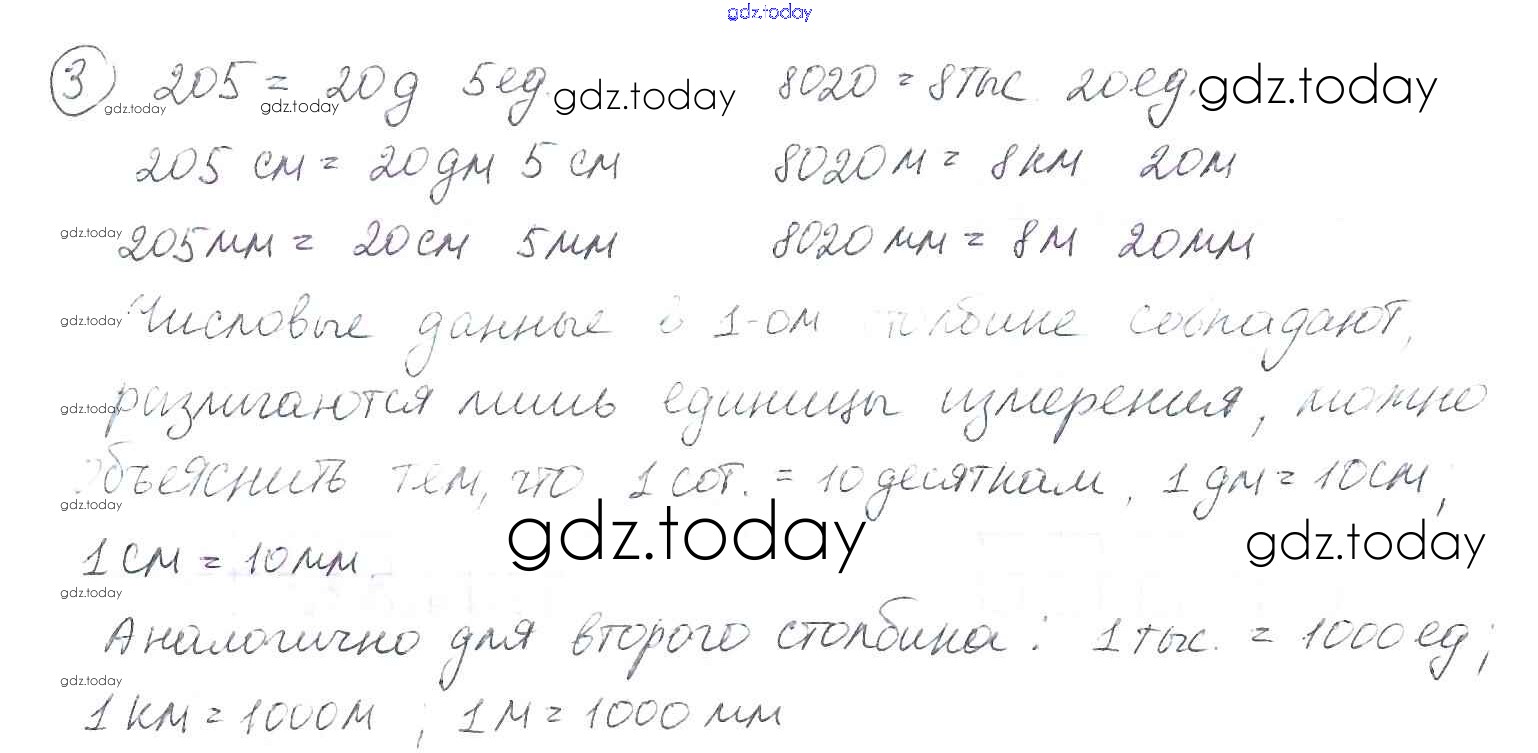 gdz.today
3 205 = 20д 5ед. gdz.today 8020 = 8тыс. 20ед. gdz.today
gdz.today gdz.today
205 см = 20дм 5 см 8020м = 8км 20м
gdz.today 205мм = 20см 5мм 8020мм = 8м 20мм
gdz.today Числовые данные в 1-ом столбике совпадают,
gdz.today различаются лишь единицы измерения, можно
объяснить тем, что 1 сот. = 10 десяткам, 1 дм = 10см,
gdz.today gdz.today gdz.today
1 см = 10мм.
gdz.today
Аналогично для второго столбика: 1 тыс. = 1000 ед;
gdz.today
1 км = 1000м ; 1 м = 1000 мм